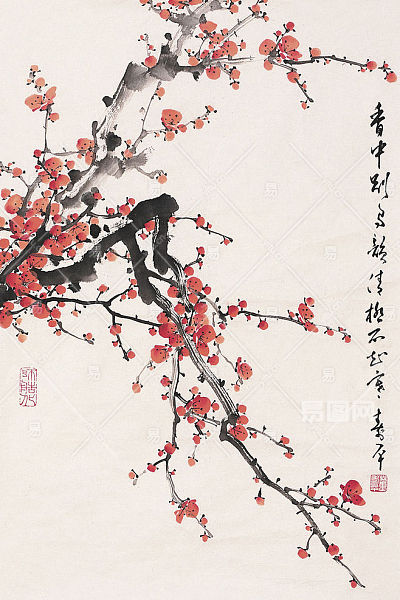 香中别有韵清极不知寒
寿平
易图网